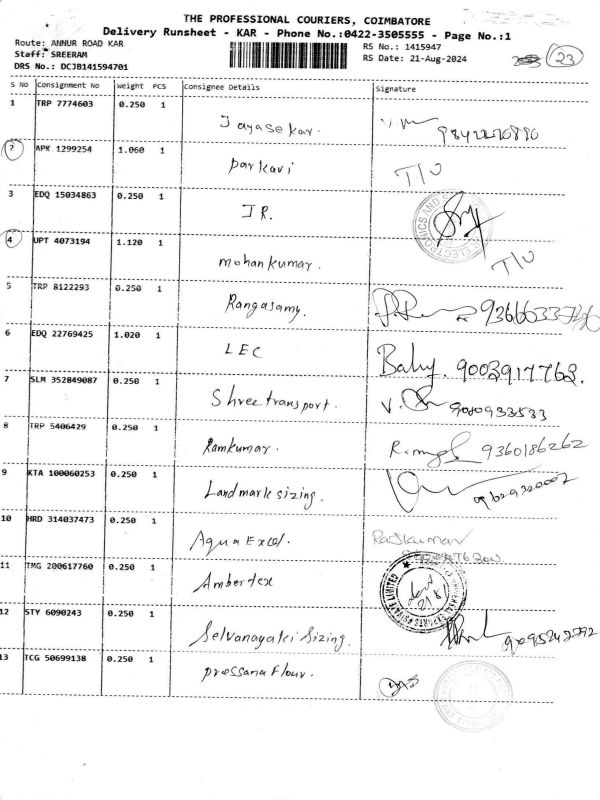 THE PROFESSIONAL COURIERS, COIMBATORE
Delivery Runsheet - KAR - Phone No.:0422-3505555 - Page No.:1
Route: ANNUR ROAD KAR
Staff: SREERAM
DRS No.: DCJB141594701
RS No.: 1415947
RS Date: 21-Aug-2024
23
S No Consignment No Weight PCS Consignee Details Signature
1 TRP 7774603 0.250 1 Jayasekar.
2 APK 1299254 1.060 1 parkavi T/U
3 EDQ 15034863 0.250 1 JR.
4 UPT 4073194 1.120 1 mohankumar. T/U
5 TRP 8122293 0.250 1 Rangasamy.
6 EDQ 22769425 1.020 1 LEC Baby. 9003917763.
7 SLM 352849087 0.250 1 Shreetransport.
8 TRP 5406429 0.250 1 Ramkumar. 9360186262
9 KTA 100060253 0.250 1 Landmark sizing.
10 HRD 314037473 0.250 1 Aqua Excel. Rajkumar
11 TMG 200617760 0.250 1 Ambertex
12 STY 6090243 0.250 1 Selvanayaki Sizing.
13 TCG 50699138 0.250 1 prossana flour.